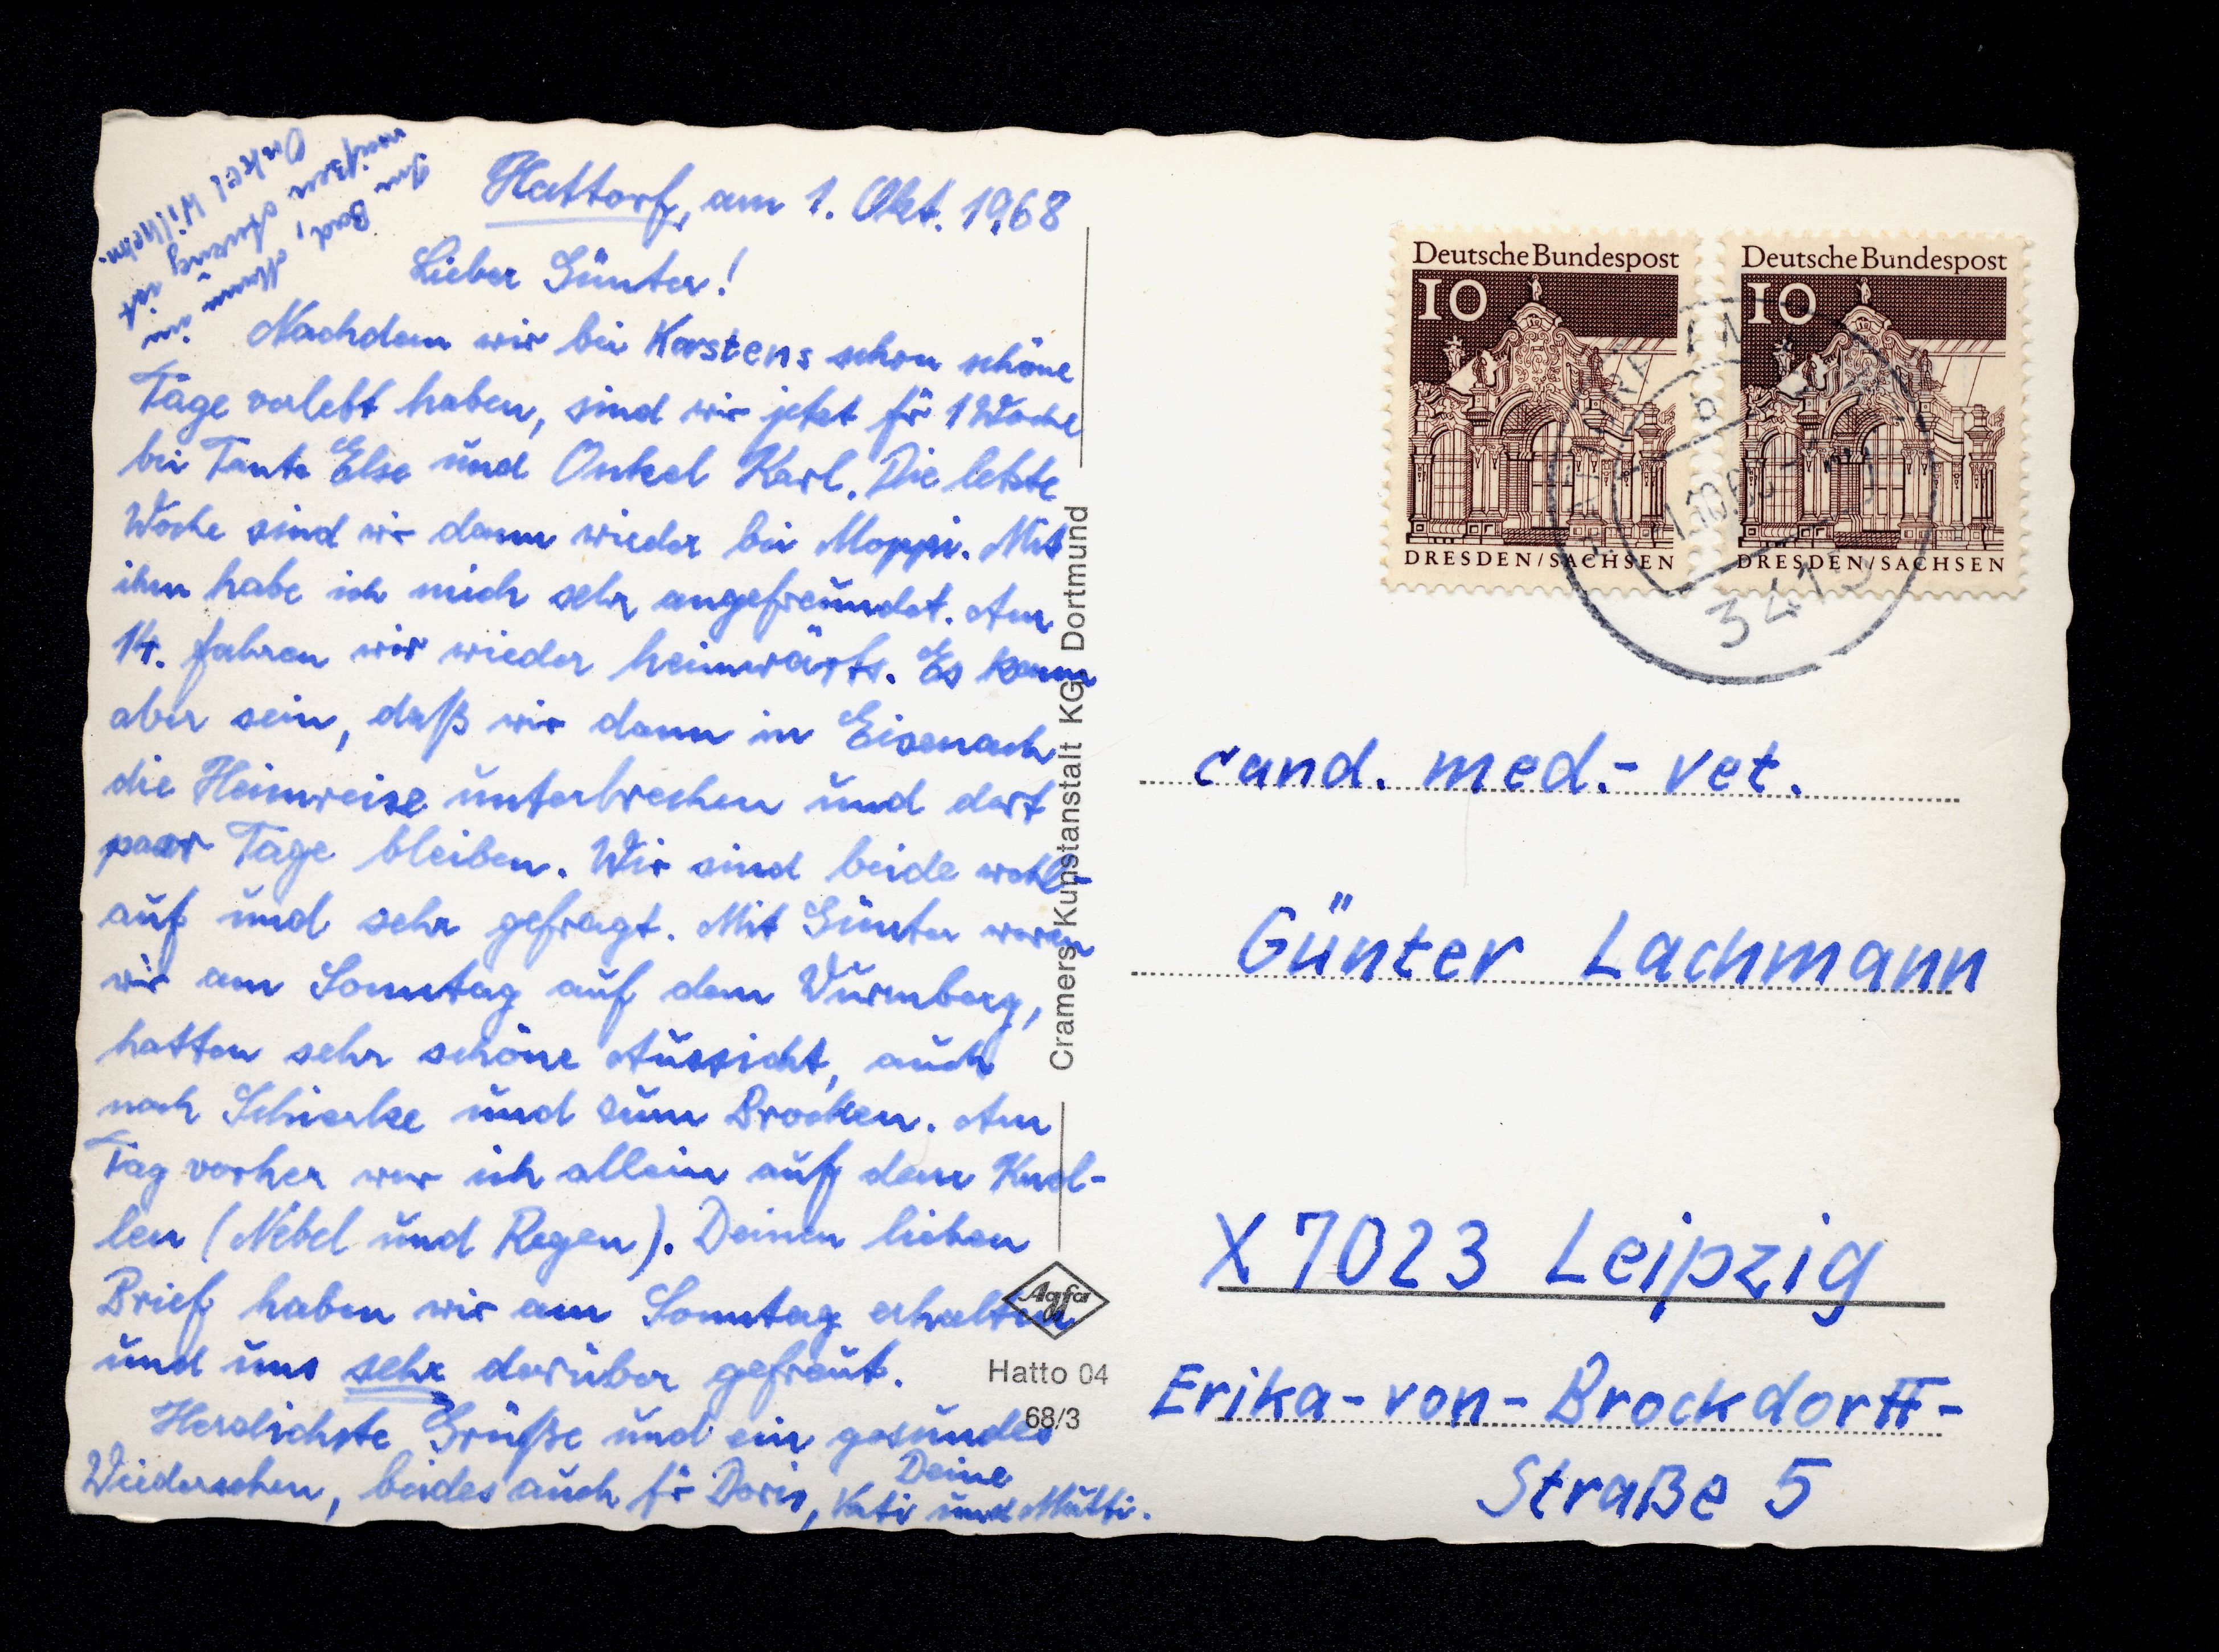 Hattorf, am 1. Okt. 1968
Lieber Günter!
Nachdem wir bei Karstens schon schöne
Tage verlebt haben, sind wir jetzt für 1 Woche
bei Tante Else und Onkel Karl. Die letzte
Woche sind wir dann wieder bei Moppi. Mit
ihm habe ich mich sehr angefreundet. Am
14. fahren wir wieder heimwärts. Es kann
aber sein, daß wir dann in Eisenach
die Heimreise unterbrechen und dort
paar Tage bleiben. Wir sind beide wohl-
auf und sehr gefragt. Mit Günter waren
wir am Sonntag auf dem Wurmberg,
hatten sehr schöne Aussicht, auch
nach Schierke und zum Brocken. Am
Tag vorher war ich allein auf dem Knol-
len (Nebel und Regen). Deinen lieben
Brief haben wir am Sonntag erhalten
und uns sehr darüber gefreut.
Herzlichste Grüße und ein gesundes
Wiedersehen, beides auch für Doris, Deine
Vati und Mutti.
Onkel Wilhelm
Cramers Kunstanstalt KG, Dortmund
Agfa
Hatto 04
68/3
Deutsche Bundespost
10
DRESDEN/SACHSEN
Deutsche Bundespost
10
DRESDEN/SACHSEN
cand. med.- vet.
Günter Lachmann
X 7023 Leipzig
Erika-von-Brockdorff-
Straße 5